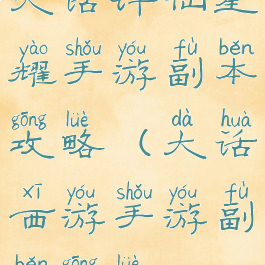 大话许仙星
yào shǒu yóu fù běn
耀手游副本
gōng lüè dà huà
攻略（大话
xī yóu shǒu yóu fù
西游手游副
běn gōng lüè